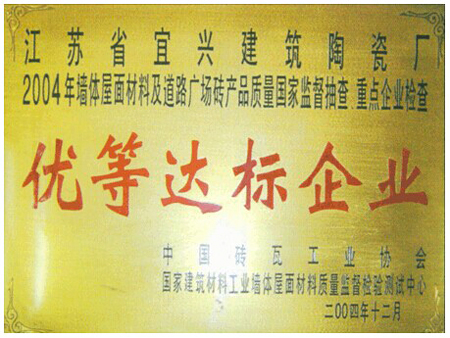 江苏省宜兴建筑陶瓷厂
2004年墙体屋面材料及道路广场砖产品质量国家监督抽查·重点企业检查
优等达标企业
中国砖瓦工业协会
国家建筑材料工业墙体屋面材料质量监督检验测试中心
二00四年十二月